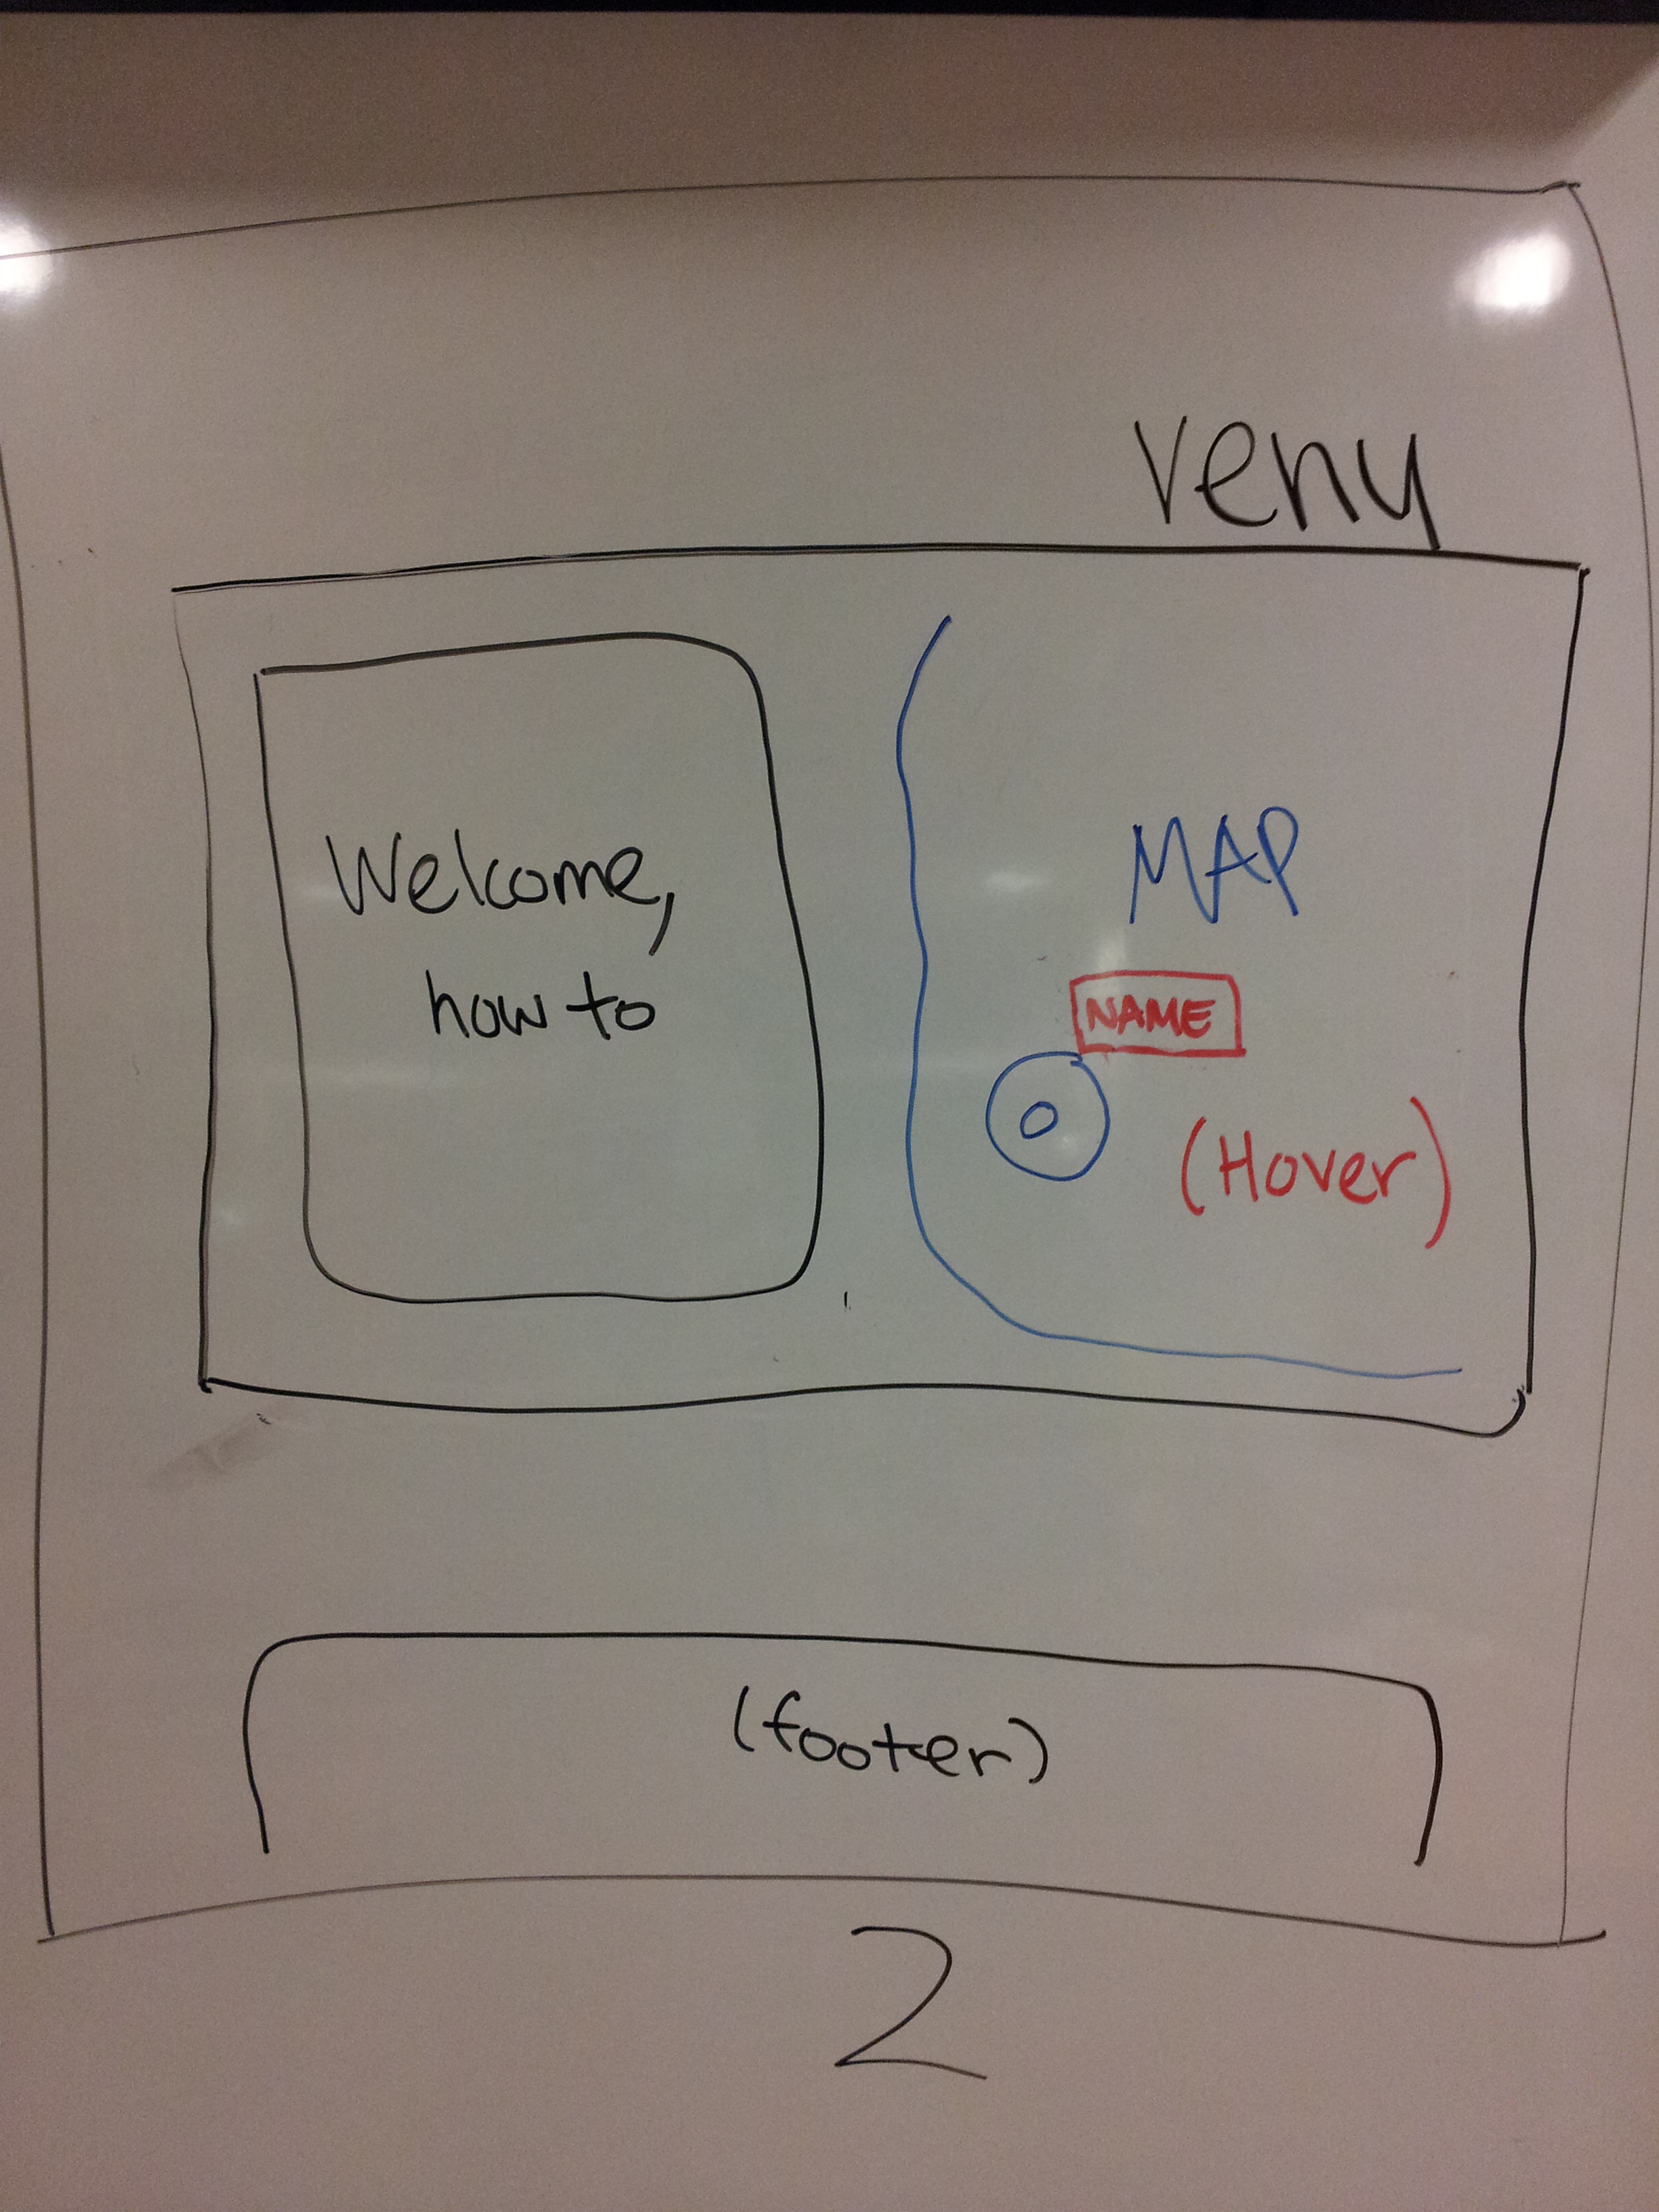 veny
Welcome,
how to
MAP
NAME
(Hover)
(footer)
2